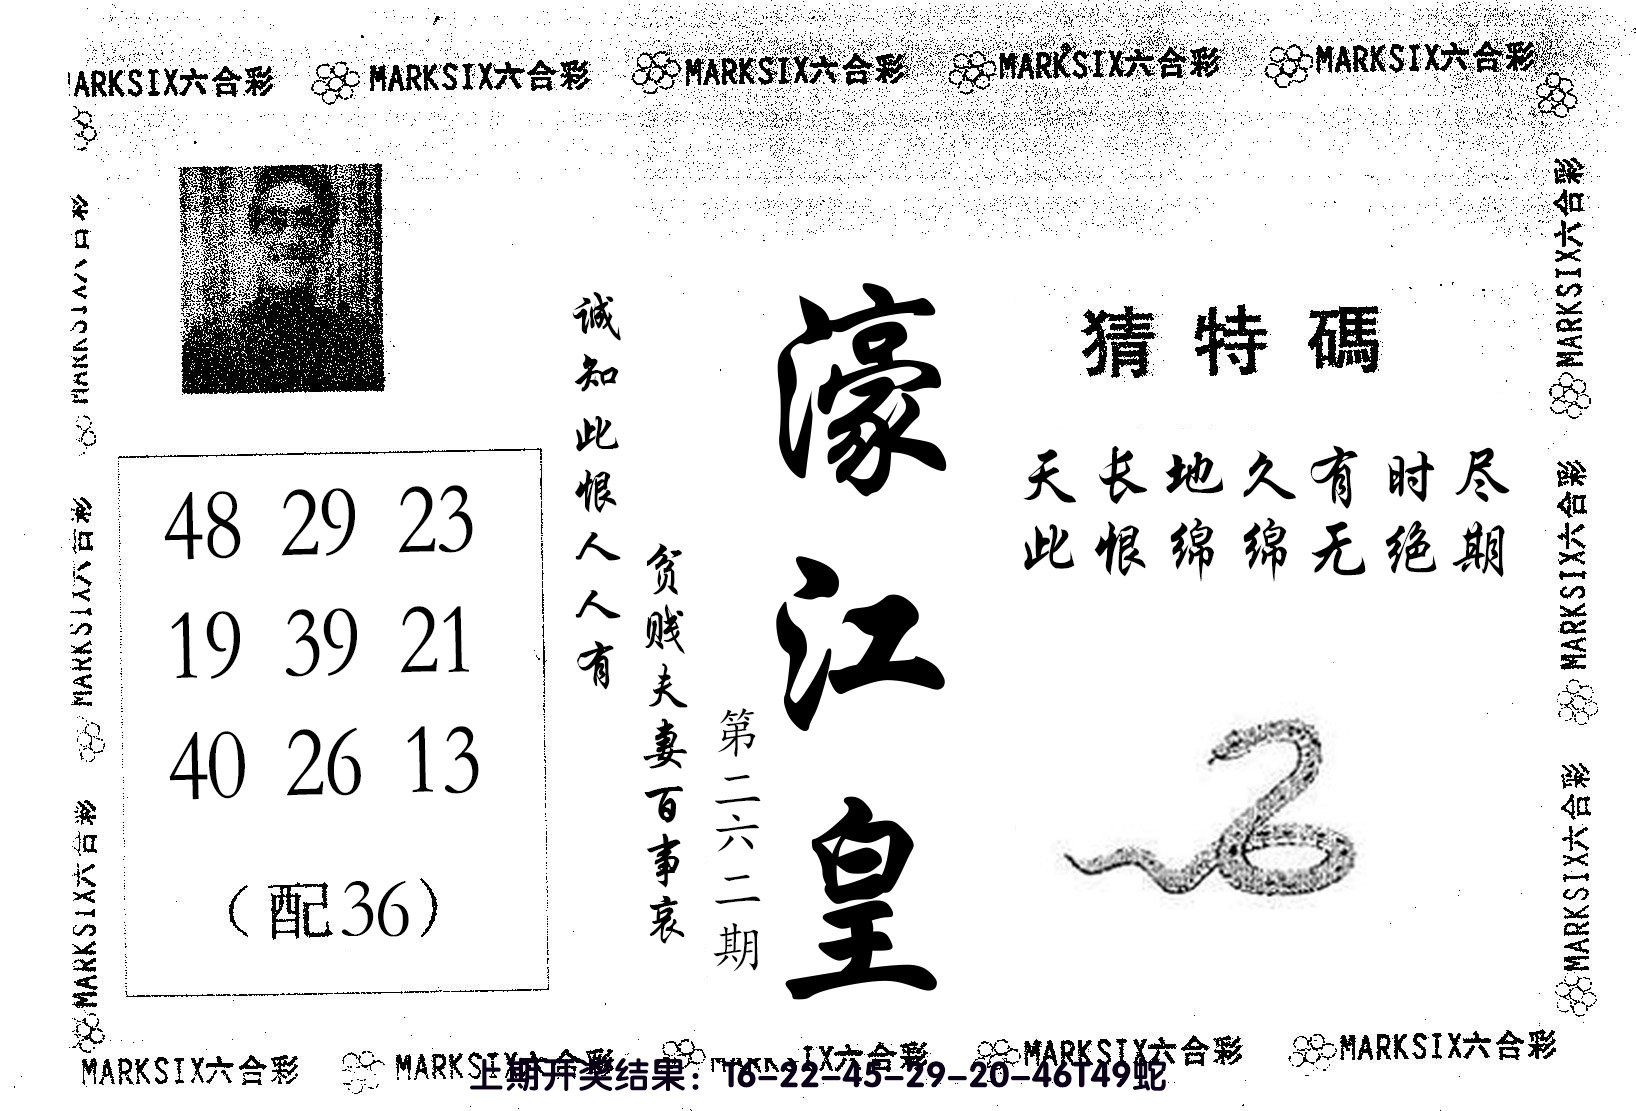 MARKSIX六合彩 MARKSIX六合彩 MARKSIX六合彩 MARKSIX六合彩 MARKSIX六合彩
猜特碼
天长地久有时尽
此恨绵绵无绝期
濠江皇
第二六二期
诚知此恨人人有
贫贱夫妻百事哀
48 29 23
19 39 21
40 26 13
（配36）
MARKSIX六合彩
MARKSIX六合彩
MARKSIX六合彩
MARKSIX六合彩
MARKSIX六合彩
MARKSIX六合彩
MARKSIX六合彩 MARKSIX六合彩 IX六合彩 MARKSIX六合彩 MARKSIX六合彩
上期开奖结果：T6-22-45-29-20-46T49蛇